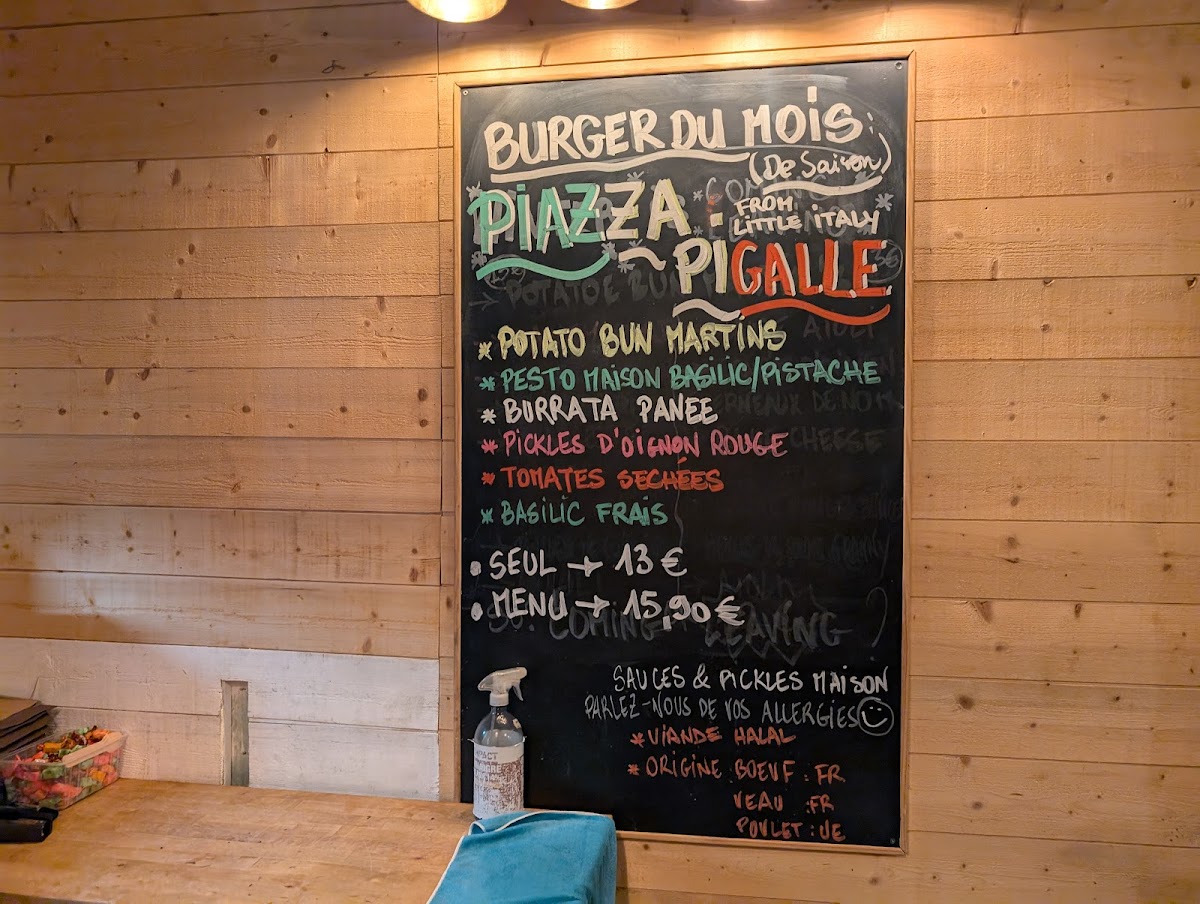 BURGER DU MOIS:
(De Saison)
PIAZZA : FROM
LITTLE ITALY
PIGALLE
* POTATO BUN MARTINS
* PESTO MAISON BASILIC/PISTACHE
* BURRATA PANEE
* PICKLES D'OIGNON ROUGE
* TOMATES SECHÉES
* BASILIC FRAIS
• SEUL → 13 €
• MENU → 15,90 €
COMING LEAVING ?
SAUCES & PICKLES MAISON
PARLEZ-NOUS DE VOS ALLERGIES
* VIANDE HALAL
* ORIGINE BOEUF : FR
VEAU : FR
POULET : UE